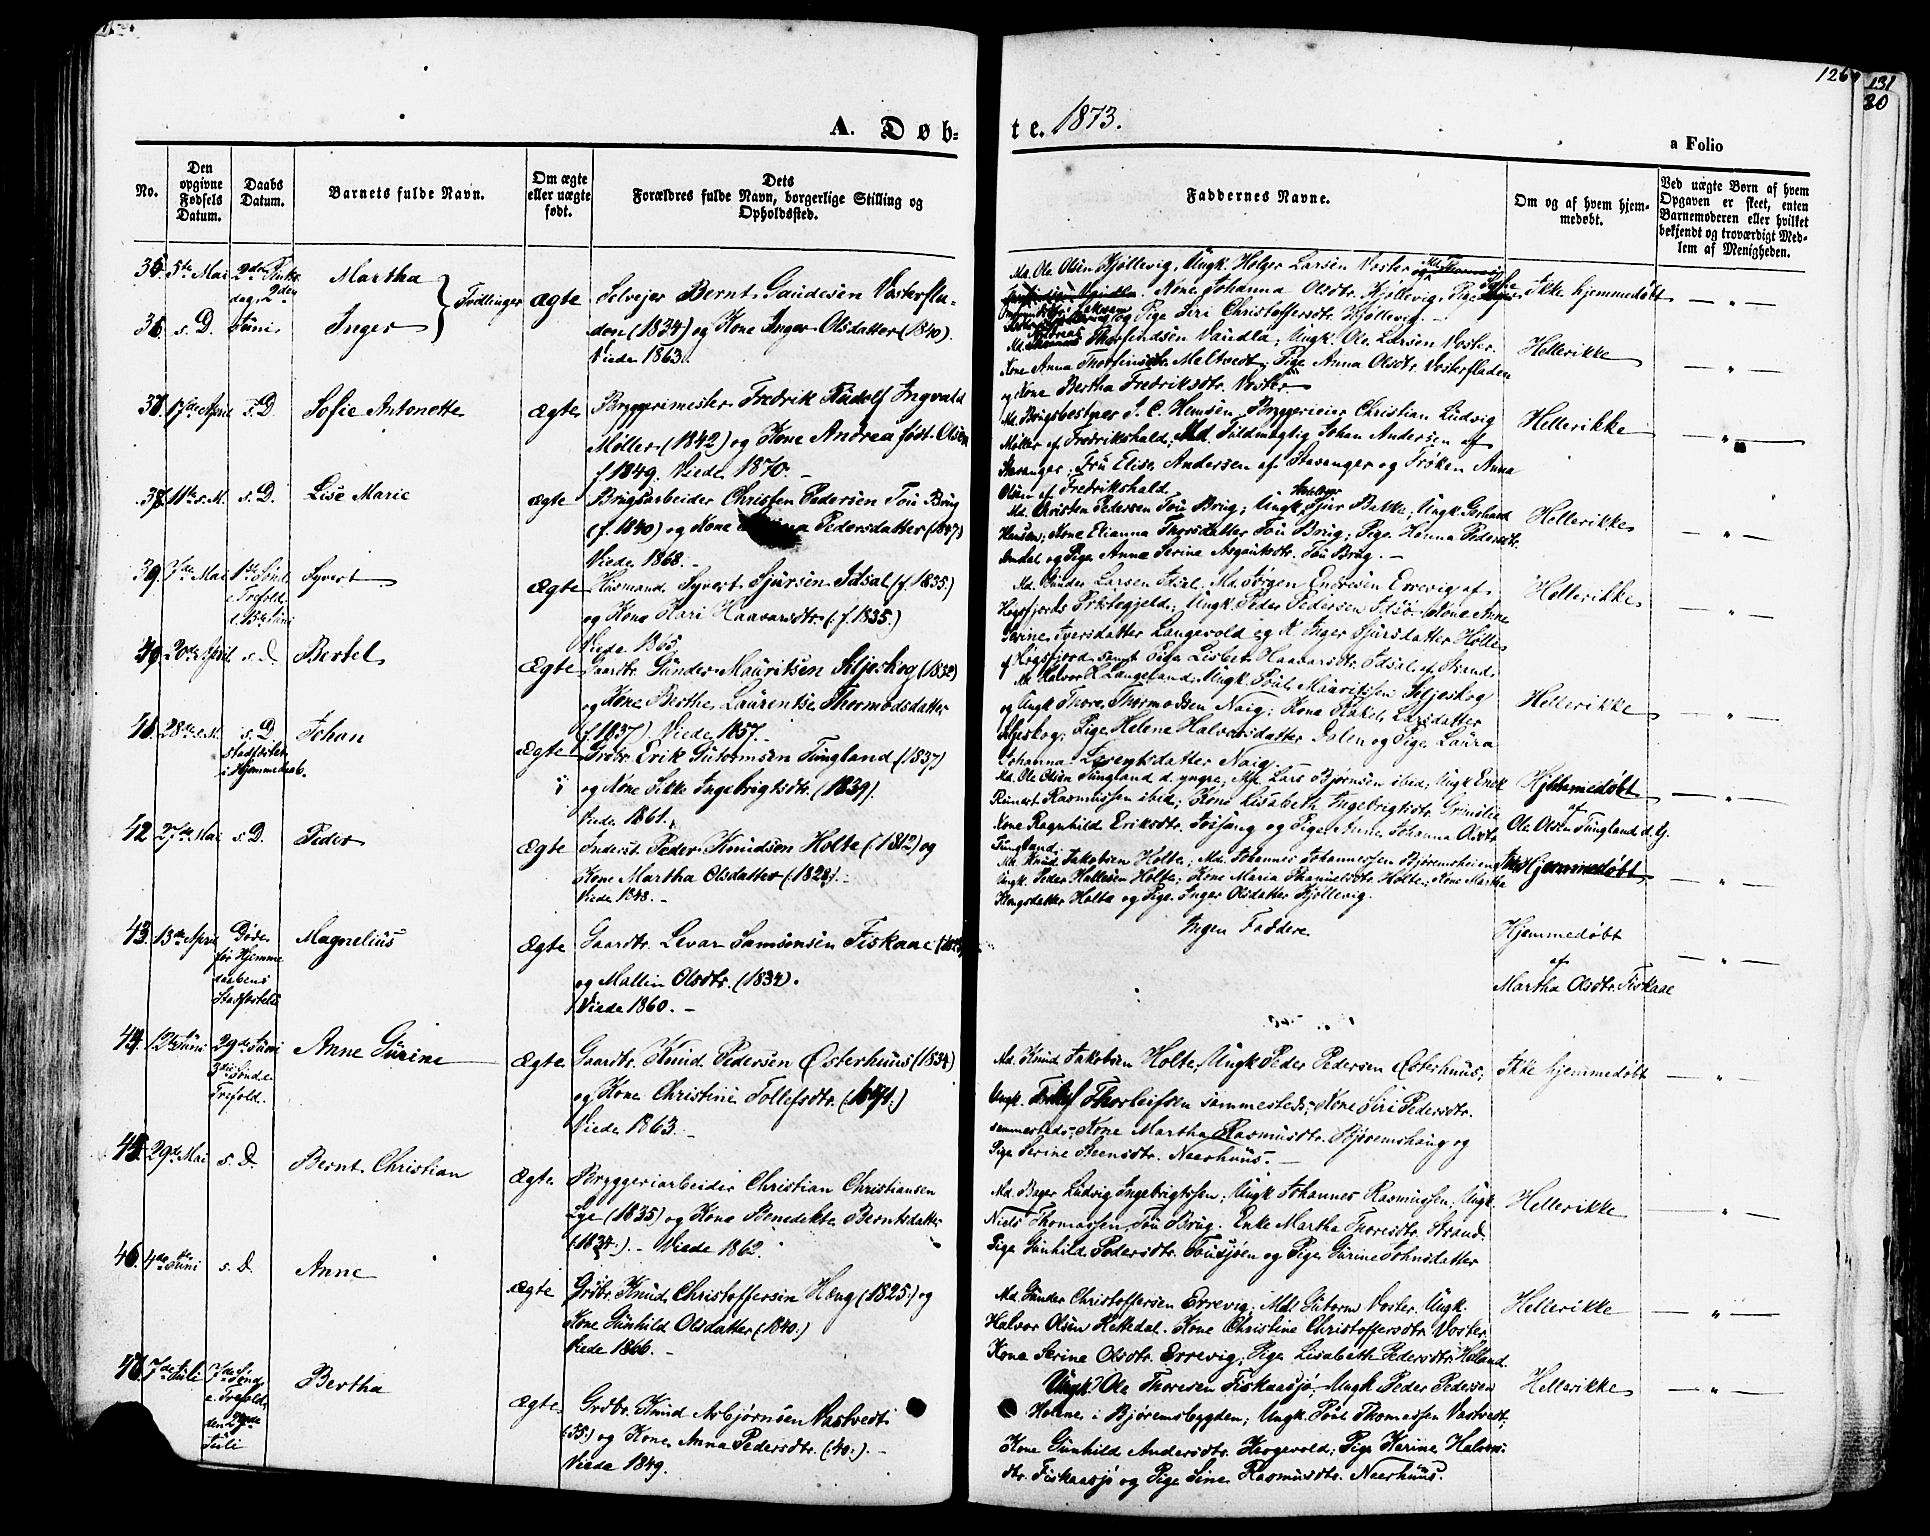 126 131
30
A. Døb-
te. 1873.
a Folio
No.
Den opgivne Fødsels Datum.
Daabs Datum.
Barnets fulde Navn.
Om ægte eller uægte født.
Dets
Forældres fulde Navn, borgerlige Stilling og
Opholdssted.
Faddernes Navne.
Om og af hvem hjem-
medøbt.
Ved uægte Børn af hvem
Opgaven er skeet, enten
Barnemoderen eller hvilket
bekjendt og troværdigt Med-
lem af Menigheden.
35 5te Mai
Martha
Inger
Tvillinger
Ægte
Selveier Bernt Gaudesen Vosterfla-
den (1834) og Kone Inger Olsdatter (1840).
Viede 1863.
Md. Ole Olsen Kjøllevig, Ungk. Holger Larsen Voster
Kone Johanna Olsdtr. Kjøllevig,
Pige Siri Christoffersdtr. Kjøllevig.
Ikke hjemmedøbt
36. s. D. Juni
Thorfindsen Vandla; Ungk. Ole Larsen Voster.
Kone Anna Thorfinsdtr. Meltvedt; Pige Anna Olsdtr. Vosterfladen
og Kone Bertha Fredriksdtr. Voster
Hellerikke
37 17de April s. D. Sofie Antonette Ægte
Bryggerimester Fredrik Rudolf Ingvald
Møller (1842) og Kone Andrea født Olsen
f. 1849. Viede 1870.
Md. Brugsbestyrer J. C. Hemsen, Bryggerieier Christian Ludvig
Møller af Fredrikshald, Md. Fuldmægtig Johan Andersen af
Stavanger; Fru Elise Andersen af Stavanger og Frøken Anna
Olsen af Fredrikshald
Hellerikke
38 11te s. M. s. D. Lise Marie ægte
Brugsarbeider Christen Pedersen Tou Brug
(f. 1840) og Kone Pedersdatter (1847)
Viede 1868.
Md. Christen Pedersen Tou Brug; Ungk. Sjur Bakke; Ungk. Gerhard
Hansen; Kone Elianna Thorsdatter Tou Brug; Pige Henna Pedersdtr.
og Pige Anne Serine Asgautsdtr. Tou Brug.
Hellerikke
39 7de Mai Syvert Ægte
Husmand Syvert Sjursen Idsal (f. 1835)
og Kone Kari Haavarsdtr. (f. 1835.)
Viede 1865.
Md. Gunder Larsen Idsal. Md. Jørgen Endresen Errevig af
Høgsfjords Præstegjeld; Ungk. Peder Pedersen Idsø; Kone Anne
Serine Iversdatter Langevold og K. Inger Sjursdatter Holle
af Høgsfjord samt Pige Lisbet Haavarsdtr. Idsal af Strand.
Hellerikke
40 20de April s. D. Bertel Ægte
Gaardbr. Gunder Mauritsen Seljeskog (1832)
og Kone Berthe Laurentse Thormodsdatter
(f. 1837) Viede 1857.
Md. Halvor H. Langeland; Ungk. Poul Mauritssen Seljeskog
og Ungk. Thore Thormodsen Naig; Kone Rakel Larsdatter
Seljeskog; Pige Helene Halvorsdatter og Pige Laura
Johanna Naig.
Hellerikke
41. 28de s. M. s. D Johan Ægte
Stadfæstet
i Hjemmedaab.
Grdbr. Erik Gutormsen Tungland (1837)
og Kone Silke Ingebrigtsdtr. (1839).
Viede 1861.
Md. Ole Olsen Tungland d. yngre; Md. Lars Bjørnsen ibid; Ungk. Enok
Reinert Rasmussen ibid; Kone Lisabeth Ingebrigtsdtr.
Kone Ragnhild Eriksdtr. og Pige Anne Johanna Olsdtr.
Tungland.
Hjemmedøbt
af
Ole Olsen Tungland d. y.
42 27de Mai s. D. Peder Ægte
Inderst Peder Knudsen Holte (1812) og
Kone Martha Olsdatter (1828).
Viede 1848.
Md. Knud Jakobsen Holte; Md. Johannes Johannessen
Ungk. Peder Hallesen Holte; Kone Maria Holte; Kone Martha
Holte og Pige Inger Olsdatter Kjøllevig.
Hjemmedøbt
43. 13de April Døde
før Hjemme
daabens
Stadfæstelse
Magnelius Ægte
Gaardbr. Levar Samsonsen Fiskaae
og Mallin Olsdtr. (1834).
Viede 1860.
Ingen Faddere
Hjemmedøbt
af
Martha Olsdtr. Fiskaae
44. 12te Juni 29de Juni
Trefold.
Anne Gurine Ægte
Gaardbr. Knud Pedersen Østerhuus (1834)
og Kone Christine Tollefsdtr.
Viede 1863.
Md. Knud Jakobsen Holte; Ungk Peder Pedersen Østerhuus;
Ungk. Thorleifsen sammesteds; Kone Siri Pedersdtr.
sammesteds; Kone Martha Rasmusdtr. Bjøremshaug og
Pige Serine Steensdtr. Neerhuus.
Ikke hjemmedøbt
45. 29de Mai s. D. Bernt Christian Ægte
Bryggeriarbeider Christian Christiansen
Lye (1835) og Kone Benedikte Berntsdatter
Viede 1862.
Md. Bager Ludvig Ingebrigtssen; Ungk. Johannes Rasmussen; Ungk.
Niels Thomassen Tou Brug. Enke Martha Thoresdtr. Strand
Pige Gunhild Pedersdtr. Tousjøen og Pige Gurine Johnsdatter
Hellerikke
46. 4de Juni s. D. Anne ægte
Grdbr. Knud Christoffersen Haug (1825) og
Kone Gunhild Olsdatter (1840.)
Viede 1866.
Md. Gunder Christoffersen Errevig; Md. Gutorm Voster. Ungk.
Halvor Olsen Kettedal. Kone Christine Christoffersdtr. Voster
Kone Serine Olsdtr. Errevig; Pige Lisabeth Pedersdtr. Høiland.
Hellerikke
47. 7de Juli
e. Trefold.
den
Juli
Bertha ægte
Grdbr. Knud Asbjørnsen Vastvedt
og Kone Anna Pedersdtr. (40.).
Viede 1849.
Ungk. Ole Thoresen Fiskaasjø, Ungk Peder Pedersen
Holene i Bjøremsbygden; Ungk. Poul Thomassen Vastvedt,
Kone Gunhild Andersdtr. Krogevold; Pige Karine Halvors-
dtr. Fiskaasjø og Pige Sine Rasmusdtr. Neerhuus.
Hellerikke